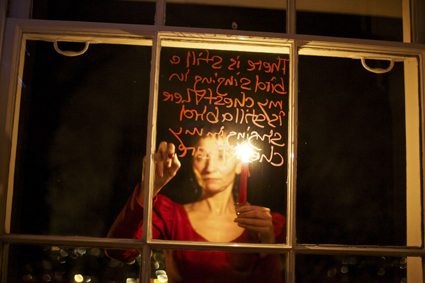 There is still a
bird singing in
my chest There
is still a bird
singing in my
chest There